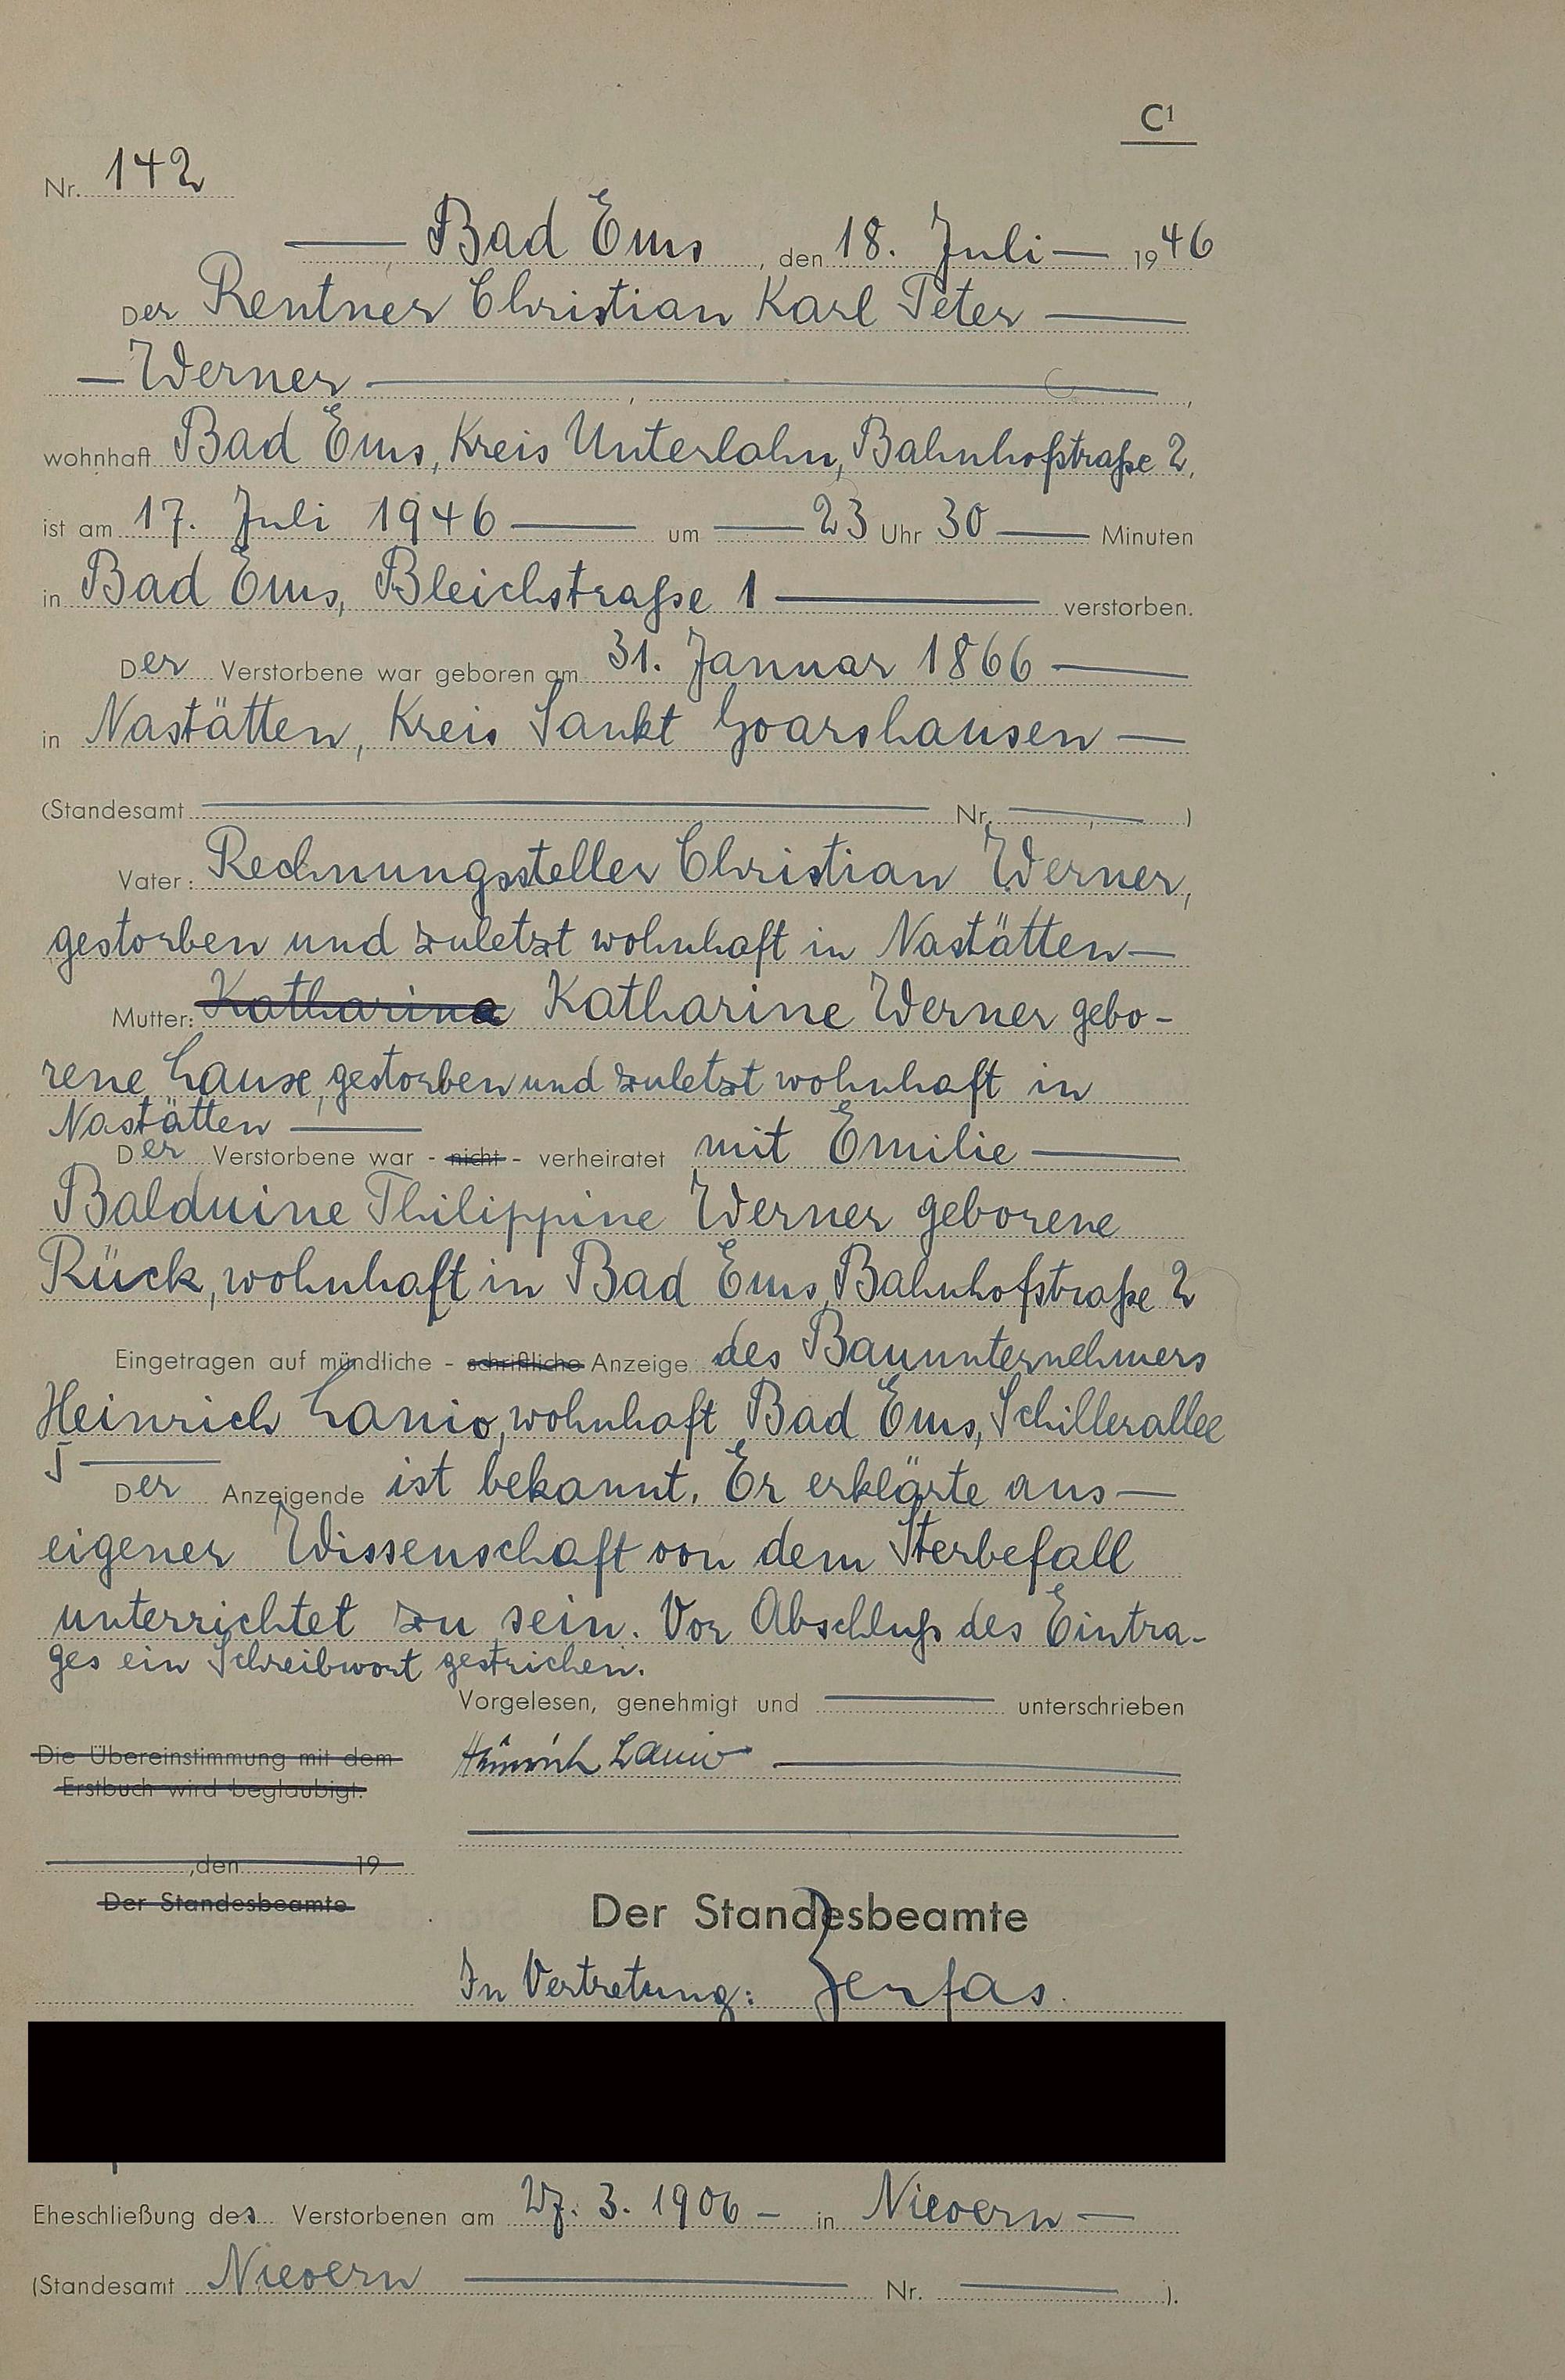 C1
Nr. 142
Bad Ems, den 18. Juli 1946
Der Rentner Christian Karl Peter
Werner,
wohnhaft Bad Ems, Kreis Unterlahn, Bahnhofstraße 2,
ist am 17. Juli 1946 um 23 Uhr 30 Minuten
in Bad Ems, Bleichstraße 1 verstorben.
Der Verstorbene war geboren am 31. Januar 1866
in Nastätten, Kreis Sankt Goarshausen
(Standesamt Nr. )
Vater: Rechnungssteller Christian Werner,
gestorben und zuletzt wohnhaft in Nastätten
Mutter: Katharina Katharine Werner gebo-
rene Lause, gestorben und zuletzt wohnhaft in
Nastätten
Der Verstorbene war - nicht - verheiratet mit Emilie
Balduine Philippine Werner geborene
Rück, wohnhaft in Bad Ems, Bahnhofstraße 2
Eingetragen auf mündliche - schriftliche Anzeige des Bauunternehmers
Heinrich Lanio, wohnhaft Bad Ems, Schillerallee
5
Der Anzeigende ist bekannt. Er erklärte aus
eigener Wissenschaft von dem Sterbefall
unterrichtet zu sein. Vor Abschluß des Eintra-
ges ein Schreibwort gestrichen.
Vorgelesen, genehmigt und unterschrieben
Die Übereinstimmung mit dem
Erstbuch wird beglaubigt.
Heinrich Lanio
, den 19
Der Standesbeamte
Der Standesbeamte
In Vertretung: Zerfas.
Eheschließung des Verstorbenen am 27. 3. 1906 in Nievern
(Standesamt Nievern Nr. ).